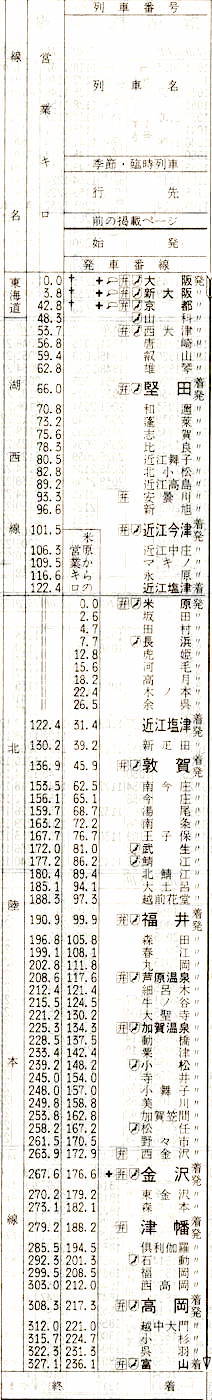 線名
営業キロ
列車番号
列車名
季節・臨時列車
行先
前の掲載ページ
始発
発車番線
東海道
湖西線
北陸本線
米原からの営業キロ
0.0 弁 大阪発
3.8 弁 新大阪〃
42.8 弁 京都〃
48.3 山科〃
53.7 弁 西大津〃
56.8 唐崎〃
59.4 叡山〃
62.8 雄琴〃
66.0 弁 堅田着発
70.8 和邇〃
73.2 蓬莱〃
75.6 志賀〃
78.3 比良〃
80.5 近江舞子〃
82.8 北小松〃
89.2 近江高島〃
93.3 弁 安曇川〃
96.6 新旭〃
101.5 弁 近江今津着発
106.3 近江中庄〃
109.5 マキノ〃
116.6 永原〃
122.4 近江塩津着
0.0 弁 米原発
2.6 坂田〃
4.7 田村〃
7.7 長浜〃
12.8 虎姫〃
15.6 河毛〃
18.2 高月〃
22.4 木ノ本〃
26.5 余呉〃
122.4 31.4 近江塩津着発
130.2 39.2 新疋田〃
136.9 45.9 弁 敦賀着発
153.5 62.5 南今庄〃
156.1 65.1 今庄〃
159.7 68.7 湯尾〃
163.2 72.2 南条〃
167.7 76.7 王子保〃
172.0 81.0 武生〃
177.2 86.2 鯖江〃
180.4 89.4 北鯖江〃
185.1 94.1 大土呂〃
188.3 97.3 越前花堂〃
190.9 99.9 弁 福井着発
196.8 105.8 森田〃
199.1 108.1 春江〃
202.8 111.8 丸岡〃
208.6 117.6 弁 芦原温泉〃
212.4 121.4 細呂木〃
215.5 124.5 牛ノ谷〃
221.2 130.2 大聖寺〃
225.3 134.3 弁 加賀温泉〃
228.5 137.5 動橋〃
233.4 142.4 粟津〃
239.2 148.2 小松〃
245.0 154.0 寺井〃
248.0 157.0 小舞子〃
249.8 158.8 美川〃
253.8 162.8 加賀笠間〃
258.2 167.2 松任〃
261.5 170.5 野々市〃
263.9 172.9 弁 西金沢〃
267.6 176.6 弁 金沢着発
270.2 179.2 東金沢〃
273.1 182.1 森本〃
279.2 188.2 弁 津幡着発
285.5 194.5 倶利伽羅〃
292.3 201.3 石動〃
299.5 208.5 福岡〃
303.0 212.0 西高岡〃
308.3 217.3 弁 高岡着発
312.0 221.0 越中大門〃
315.7 224.7 小杉〃
322.3 231.3 呉羽〃
327.1 236.1 弁 富山着
終着